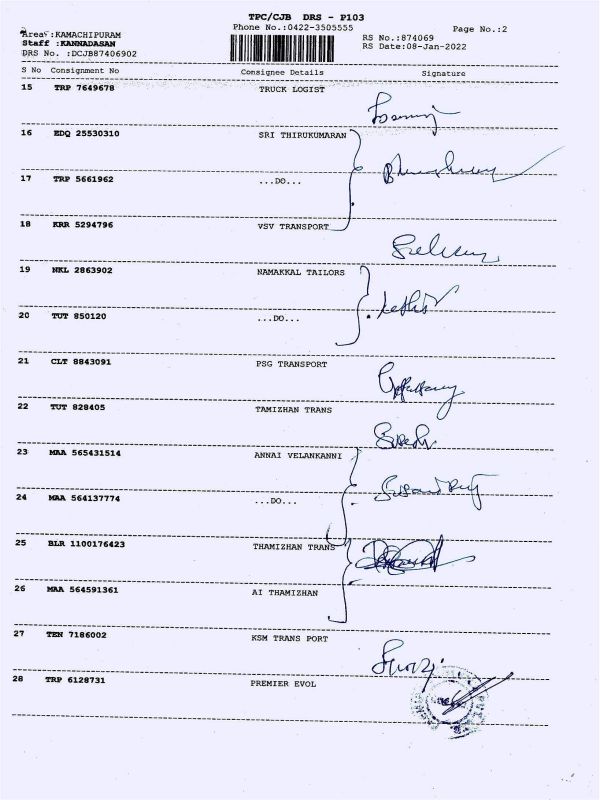 TPC/CJB DRS - P103
Phone No.:0422-3505555 Page No.:2
Area :KAMACHIPURAM
Staff :KANNADASAN RS No.:874069
DRS No. :DCJB87406902 RS Date:08-Jan-2022
S No Consignment No Consignee Details Signature
15 TRP 7649678 TRUCK LOGIST
16 EDQ 25530310 SRI THIRUKUMARAN
17 TRP 5661962 ...DO...
18 KRR 5294796 VSV TRANSPORT
19 NKL 2863902 NAMAKKAL TAILORS
20 TUT 850120 ...DO...
21 CLT 8843091 PSG TRANSPORT
22 TUT 828405 TAMIZHAN TRANS
23 MAA 565431514 ANNAI VELANKANNI
24 MAA 564137774 ...DO...
25 BLR 1100176423 THAMIZHAN TRANS
26 MAA 564591361 AI THAMIZHAN
27 TEN 7186002 KSM TRANS PORT
28 TRP 6128731 PREMIER EVOL